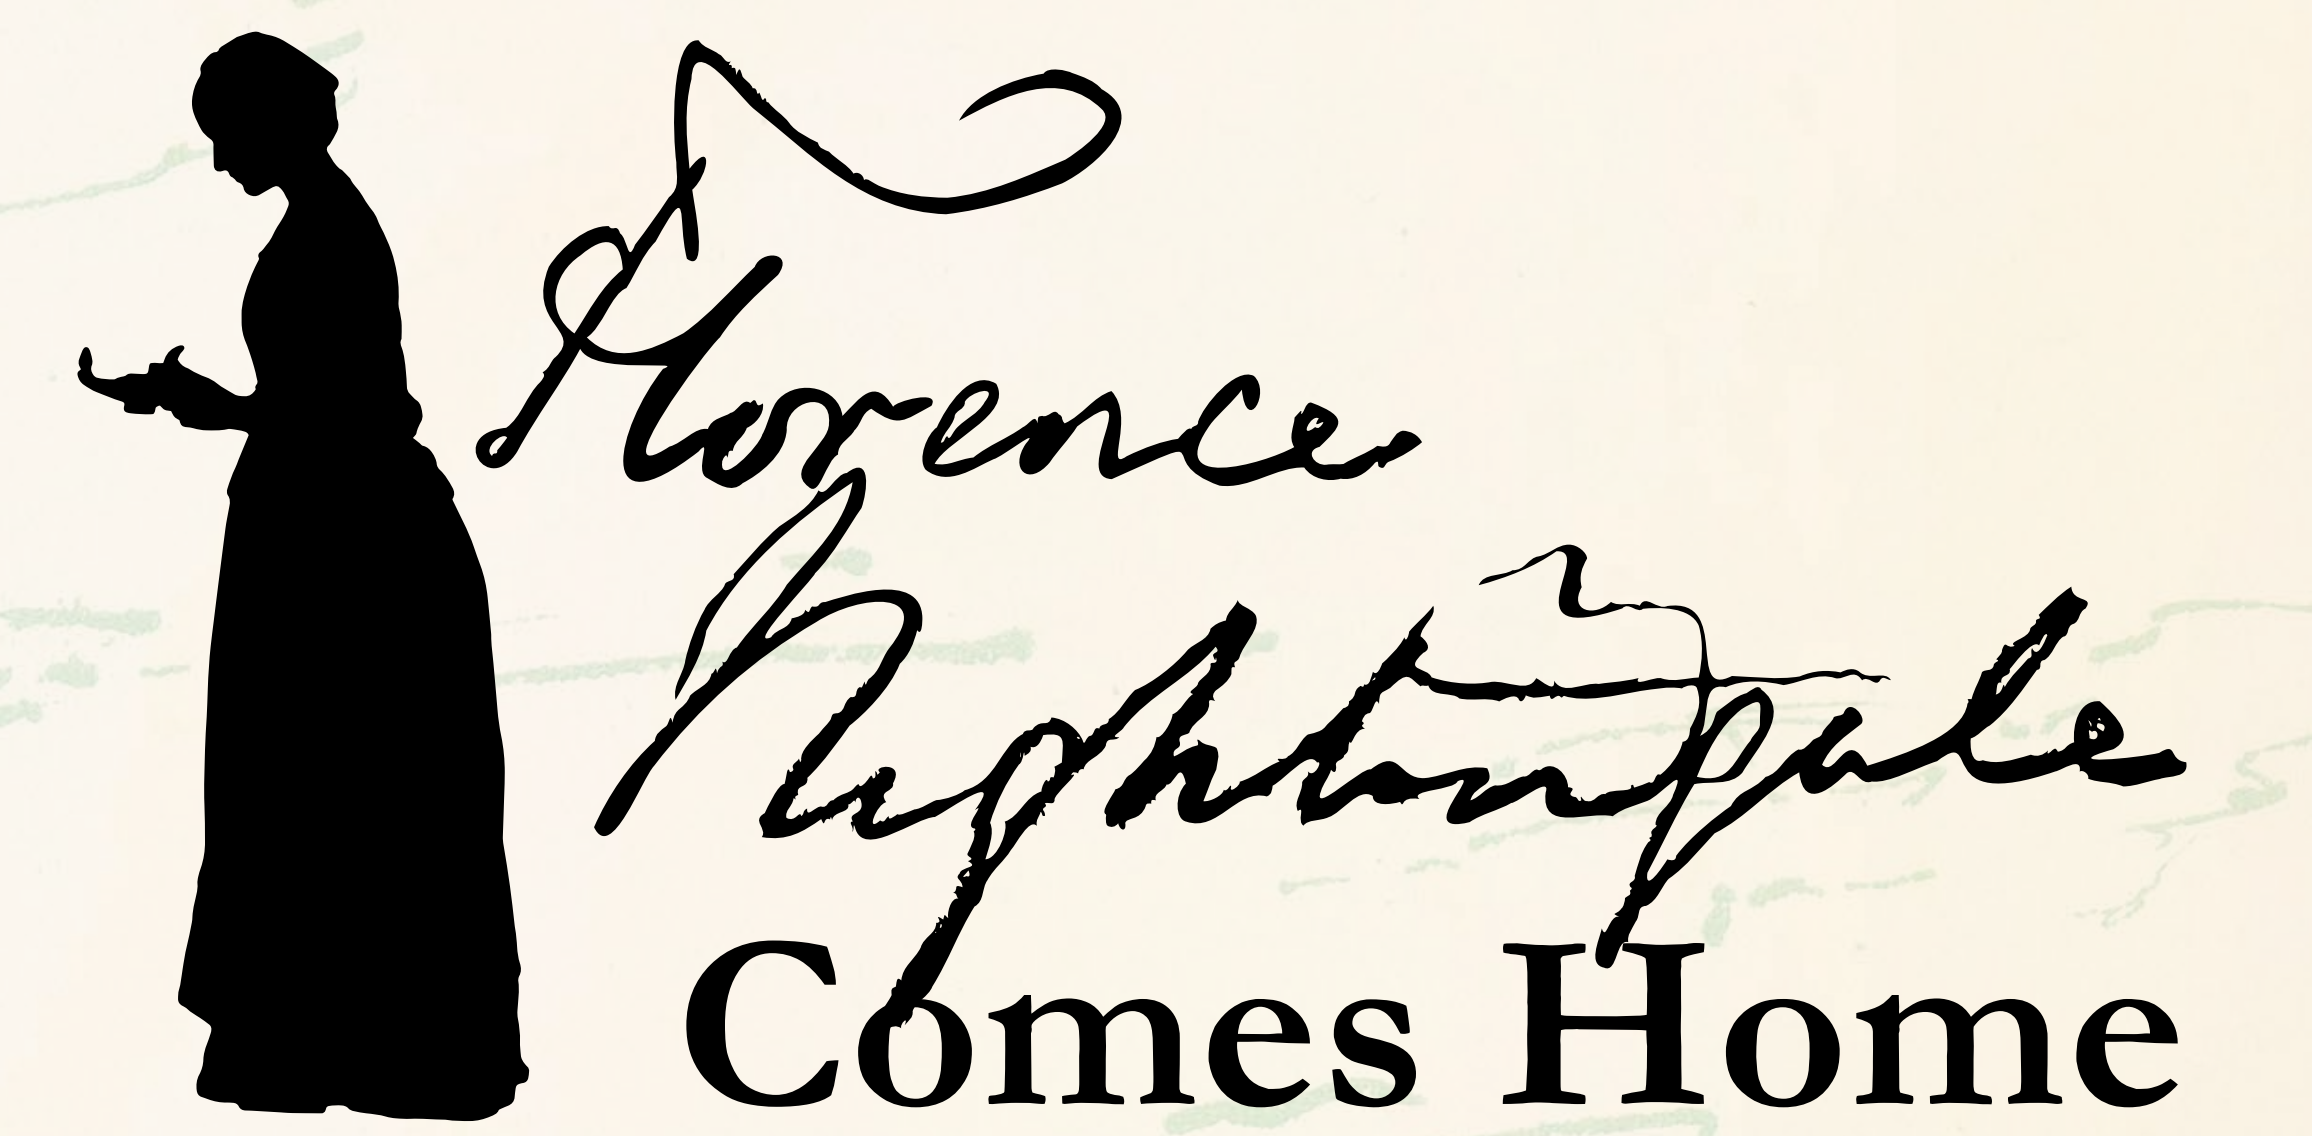 Florence
Nightingale
Comes Home